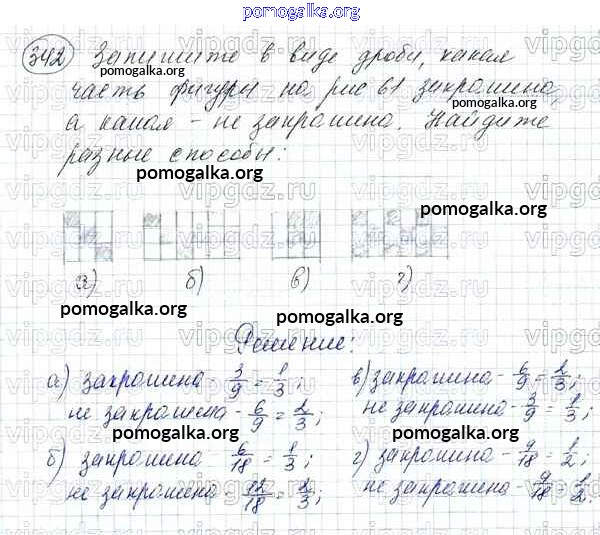 pomogalka.org
342 Запишите в виде дроби, какая
pomogalka.org
часть фигуры на рис 61 закрашена,
pomogalka.org
а какая - не закрашена. Найдите
разные способы:
pomogalka.org
pomogalka.org
а) б) в) г)
pomogalka.org pomogalka.org
Решение:
а) закрашена - 3/9 = 1/3;
не закрашена - 6/9 = 2/3;
б) закрашена - 6/18 = 1/3;
не закрашена - 12/18 = 2/3;
в) закрашена - 6/9 = 2/3;
не закрашена - 3/9 = 1/3;
г) закрашена - 9/18 = 1/2;
не закрашена - 9/18 = 1/2.
pomogalka.org pomogalka.org
pomogalka.org pomogalka.org
vipgdz.ru